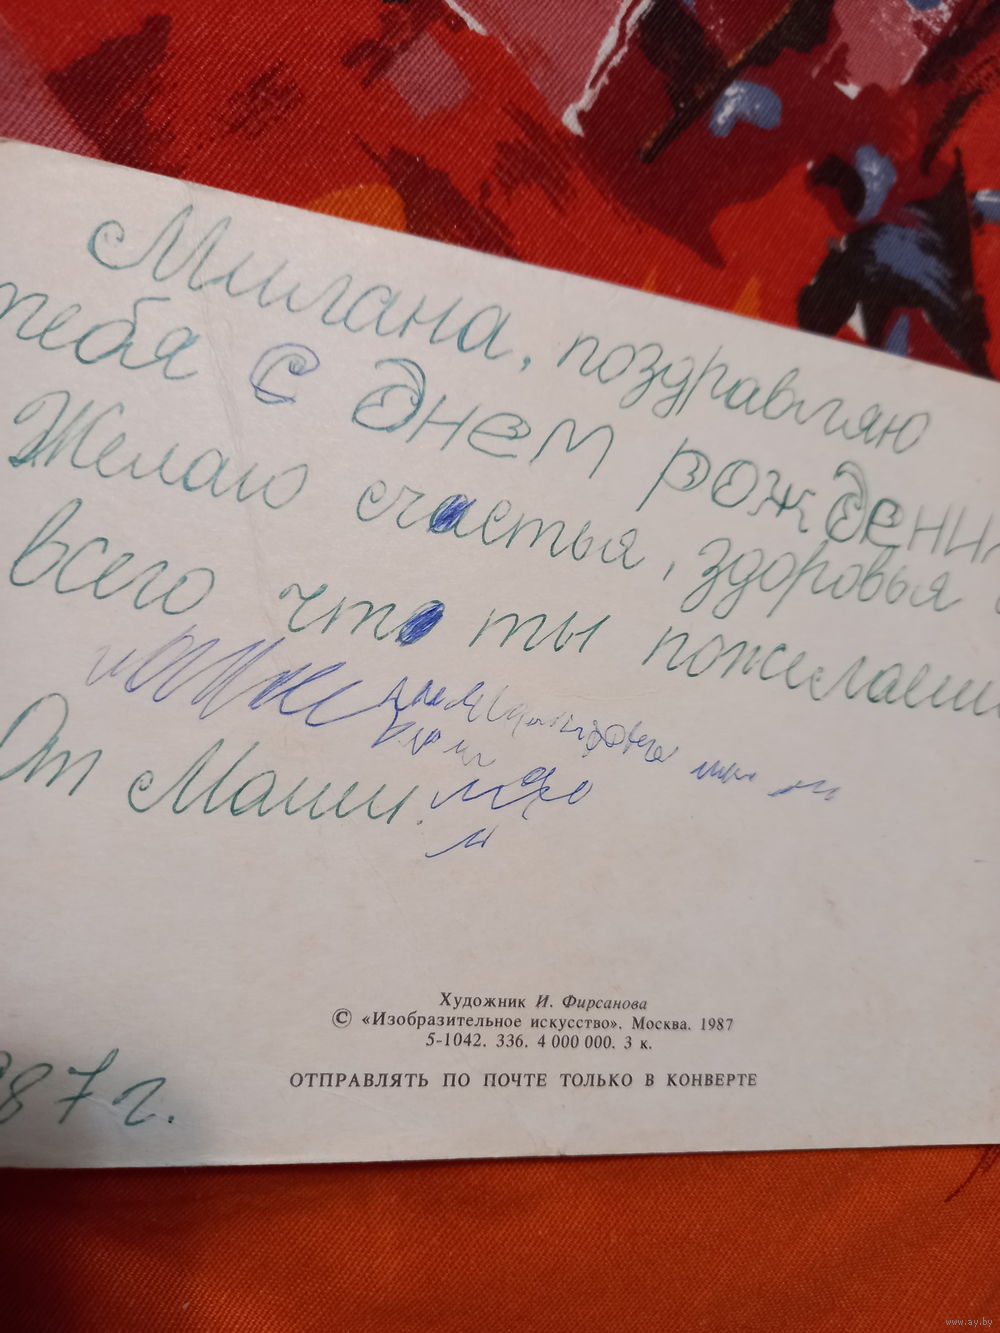 Милана, поздравляю
тебя с днем рождения
Желаю счастья, здоровья
всего что ты пожелаешь
От Маши.
Художник И. Фирсанова
© «Изобразительное искусство». Москва. 1987
5-1042. 336. 4 000 000. 3 к.
ОТПРАВЛЯТЬ ПО ПОЧТЕ ТОЛЬКО В КОНВЕРТЕ
87 г.
www.ay.by